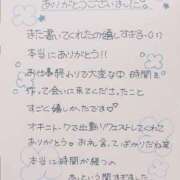 ありがとうございました
また書いてくれたの嬉しすぎる(;;)
本当にありがとう!!
お仕事終わりで大変な中 時間を
作って会いに来てくださったこと
すごく嬉しかったです♡
オキニトークで出勤リクエストしてくれて
ありがとう。お礼言ってばかりだね笑
本当に時間が経つの
あっという間すぎました